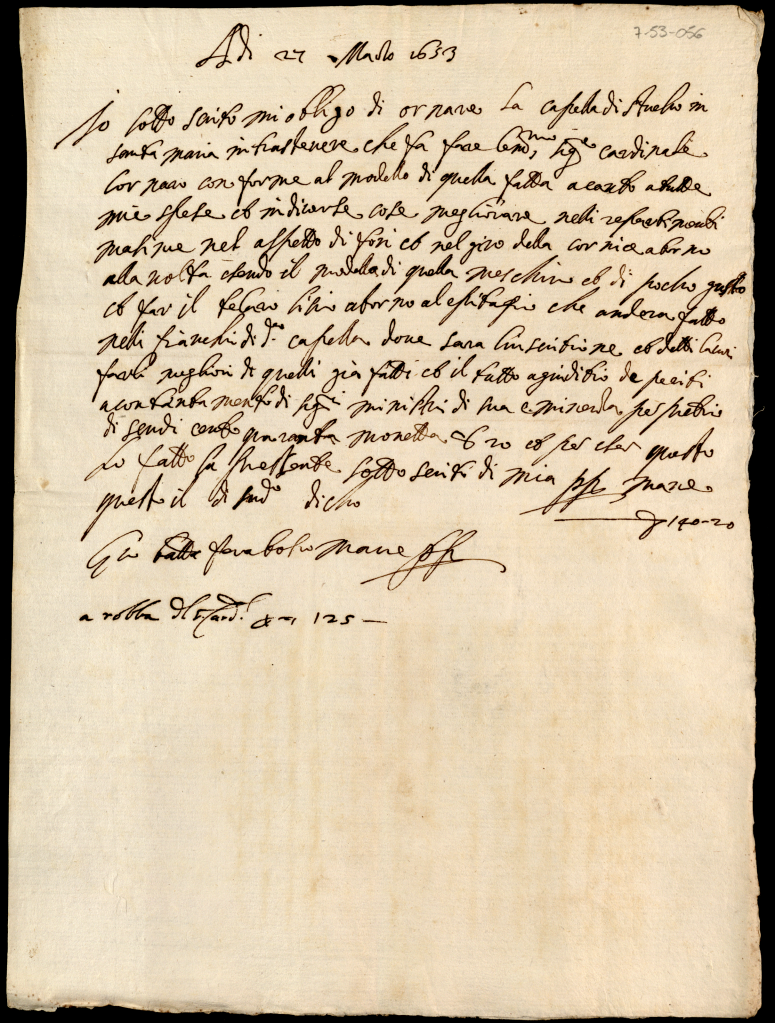 7-53-056
Adi 27 Marzo 1653
Io sotto scrito mi obligo di ornare la capella di stucho in
santa maria in trastevere che fa fare l'em.mo sig.e cardinale
Cornaro conforme al modello di quella fatta acanto a tutte
mie spese et in diverse cose megliorare nelli repartimenti
masime nel aspetto di fori et nel giro della cornice atorno
alla volta esendo il modello di quella meschino et di pocho gusto
et far il telaro liscio atorno al epitafio che andera fatto
nelli fianchi di d.a capella dove sara l'inscritione et detti lavori
farli megliori di quelli gia fatti et il tutto a giuditio de periti
a contentamento di sig.i ministri di sua eminenza per pretio
di scudi cento quaranta monetta 20 et per cher questo
ho fatto la pressente sotto scrita di mia pp mane
questo il di sud.o dicho
140-20
Gio batta ferabosco mane pp
a robba del s.r Card.l 125 —